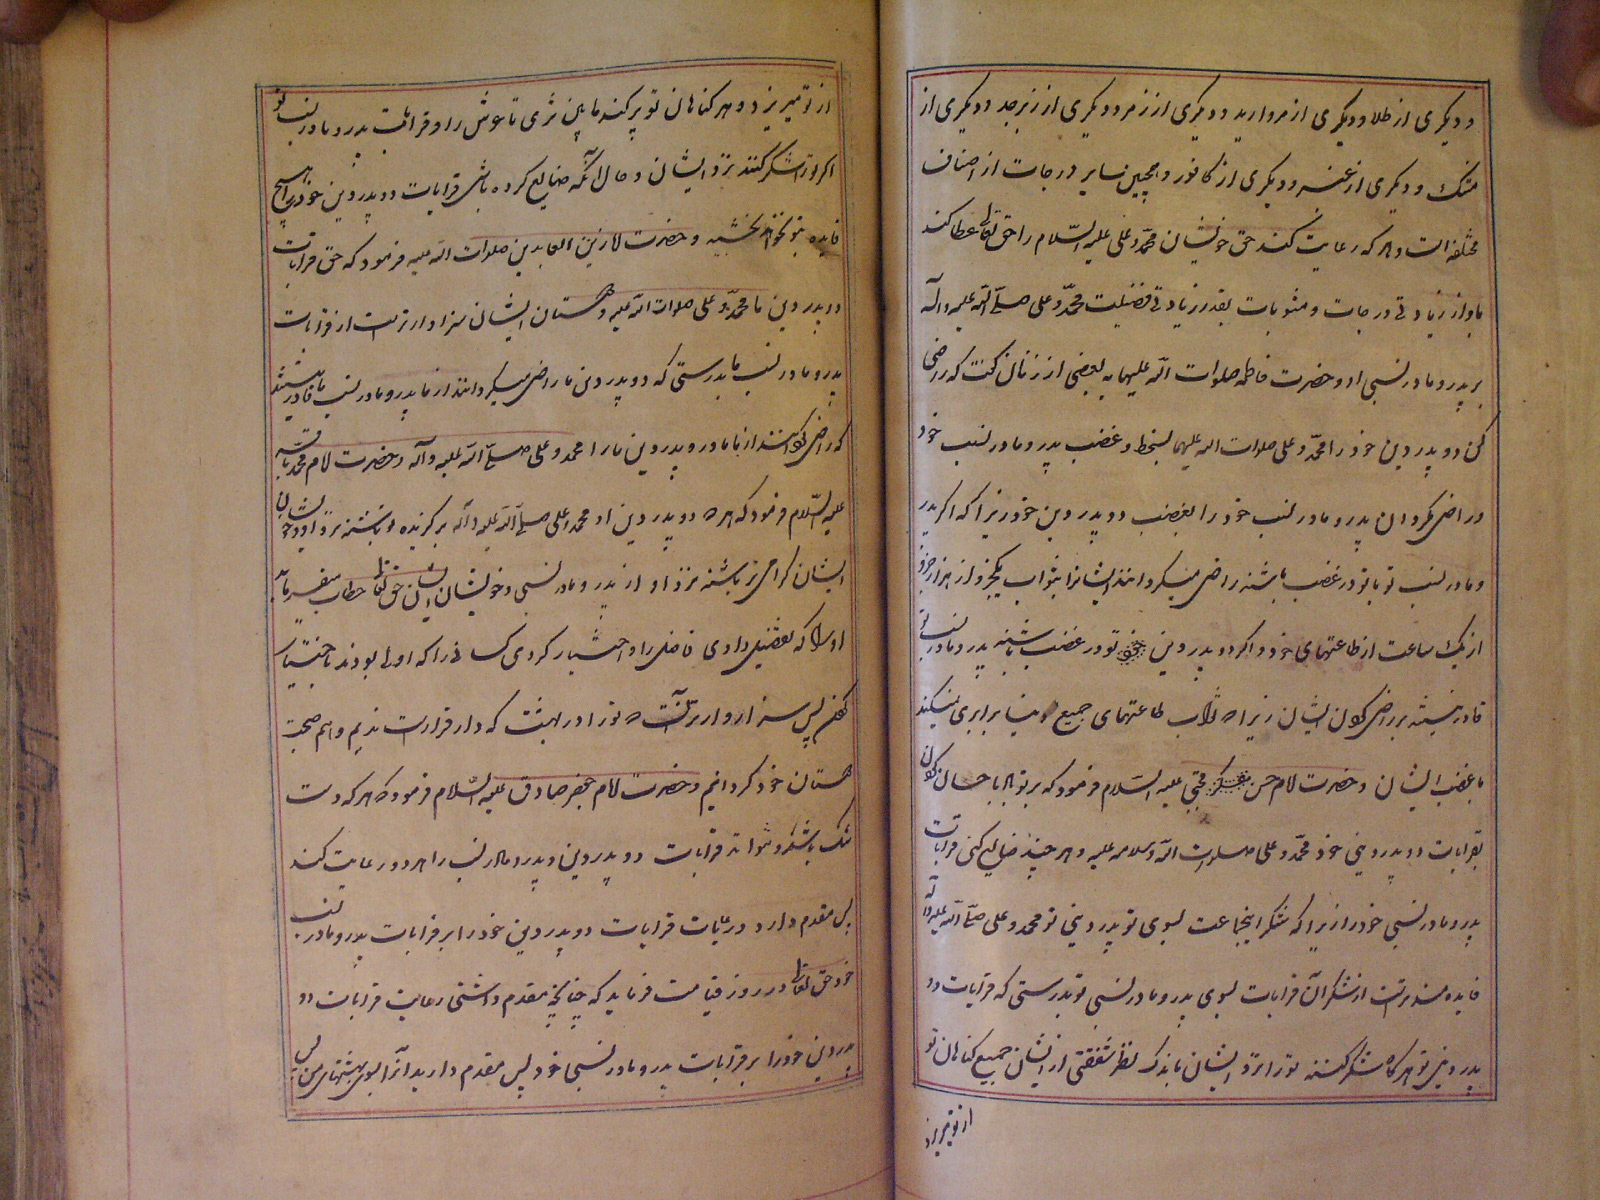 و دیکری از طلا و دیکری از مروارید و دیکری از زمرد و دیکری از زبرجد و دیکری از
مشک و دیکری از عنبر و دیکری از کافور و همچنین سایر درجات از اصناف
مختلفه است و هر که رعایت کند حق خویشان محمّد و علی علیه السّلام را حق تعالی عطا کند
باو از زیادتی درجات و مثوبات بقدر زیادتی فضیلت محمّد و علی صلّی اللّه علیه و آله
بر پدر و مادر نسبی او و حضرت فاطمه صلوات اللّه علیها به بعضی از زنان گفت که راضی
کن دو پدر دین خود را محمّد و علی صلوات اللّه علیهما بسخط و غضب پدر و مادر نسب خود
و راضی مکردان پدر و مادر نسب خود را بغضب دو پدر دین خود زیرا که اکر پدر
و مادر نسب تو با تو در غضب باشند راضی میکردانند ایشانرا بثواب یکجزو از هزار جزو
از یک ساعت از طاعتهای خود و اکر دو پدر دین تو در غضب باشند پدر و مادر نسب تو
قادر نیستند بر راضی کردن ایشان زیرا که ثواب طاعتهای جمیع دنیا برابری نمیکند
با غضب ایشان و حضرت امام حسن مجتبی علیه السّلام فرمود که بر تو باد باحسان کردن
بقرابات دو پدر دینی خود محمّد و علی صلوات اللّه و سلامه علیه و هر چند ضایع کنی قرابات
پدر و مادر نسبی خود را زیرا که شکر اینجماعت بسوی دو پدر دینی تو محمد و علی صلّی اللّه علیه و آله
فایده مندتر است از شکر آن قرابات بسوی پدر و مادر نسبی تو بدرستی که قرابات دو
پدر دینی تو هر کاه شکر کنند تو را نزد ایشان باندک نظر شفقتی از ایشان جمیع کناهان تو
از تو میریزد
از تو میریزد و هر کناهان تو پر کند مابین ثری تا عرش را و قرابات پدر و مادر نسب تو
اکر تو را شکر کنند نزد ایشان و حال آنکه ضایع کرده باشی قرابات دو پدر دین خود را هیچ
فایده بتو نخواهد بخشید و حضرت امام زین العابدین صلوات اللّه علیه فرمود که حق قرابات
دو پدر دین ما محمّد و علی صلوات اللّه علیه و دوستان ایشان سزاوارتر است از قرابات
پدر و مادر نسب ما بدرستی که دو پدر دین ما راضی میکردانند از ما پدر و مادر نسب ما و قادر نیستند
که راضی کردانند از ما مادر و پدر دین ما را محمد و علی صلّی اللّه علیه و آله و حضرت امام محمد باقر
علیه السّلام فرمود که هر که دو پدر دین او محمد و علی صلّی اللّه علیه و آله برکزیده باشند نزد او و خویشان
ایشان کرامی‌تر باشند نزد او از پدر و مادر نسبی و خویشان ایشان حق تعالی خطاب میفرماید
او را که تفضیل دادی فاضل را و اختیار کردی کسانی را که اولی بودند باختیار
کردن پس سزاوارتر آنست که تو را در بهشت که دار قرار است ندیم و هم صحبت
دوستان خود کردانیم و حضرت امام جعفر صادق علیه السّلام فرمود که هر که دست
تنک باشد و نتواند قرابات دو پدر دین و پدر و مادر نسب را هر دو رعایت کند
پس مقدم دارد رعایات قرابات دو پدر دین خود را بر قرابات پدر و مادر نسب
خود حق تعالی در روز قیامت فرماید که چنانچه مقدم داشتی رعایت قرابات دو
پدر دین خود را بر قرابات پدر و مادر نسبی خود پس مقدم دارید او را بسوی بهشتهای من پس